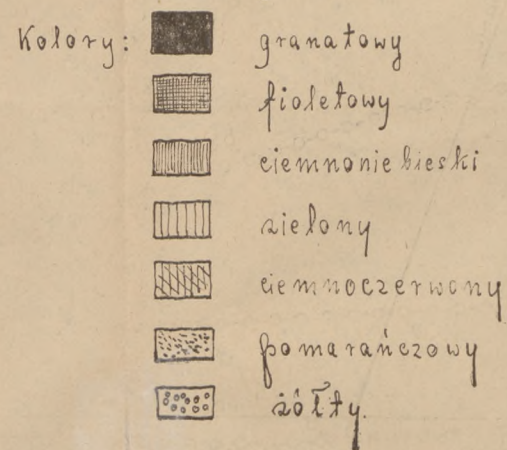 Kolory: granatowy
fioletowy
ciemnoniebieski
zielony
ciemnoczerwony
pomarańczowy
żółty.